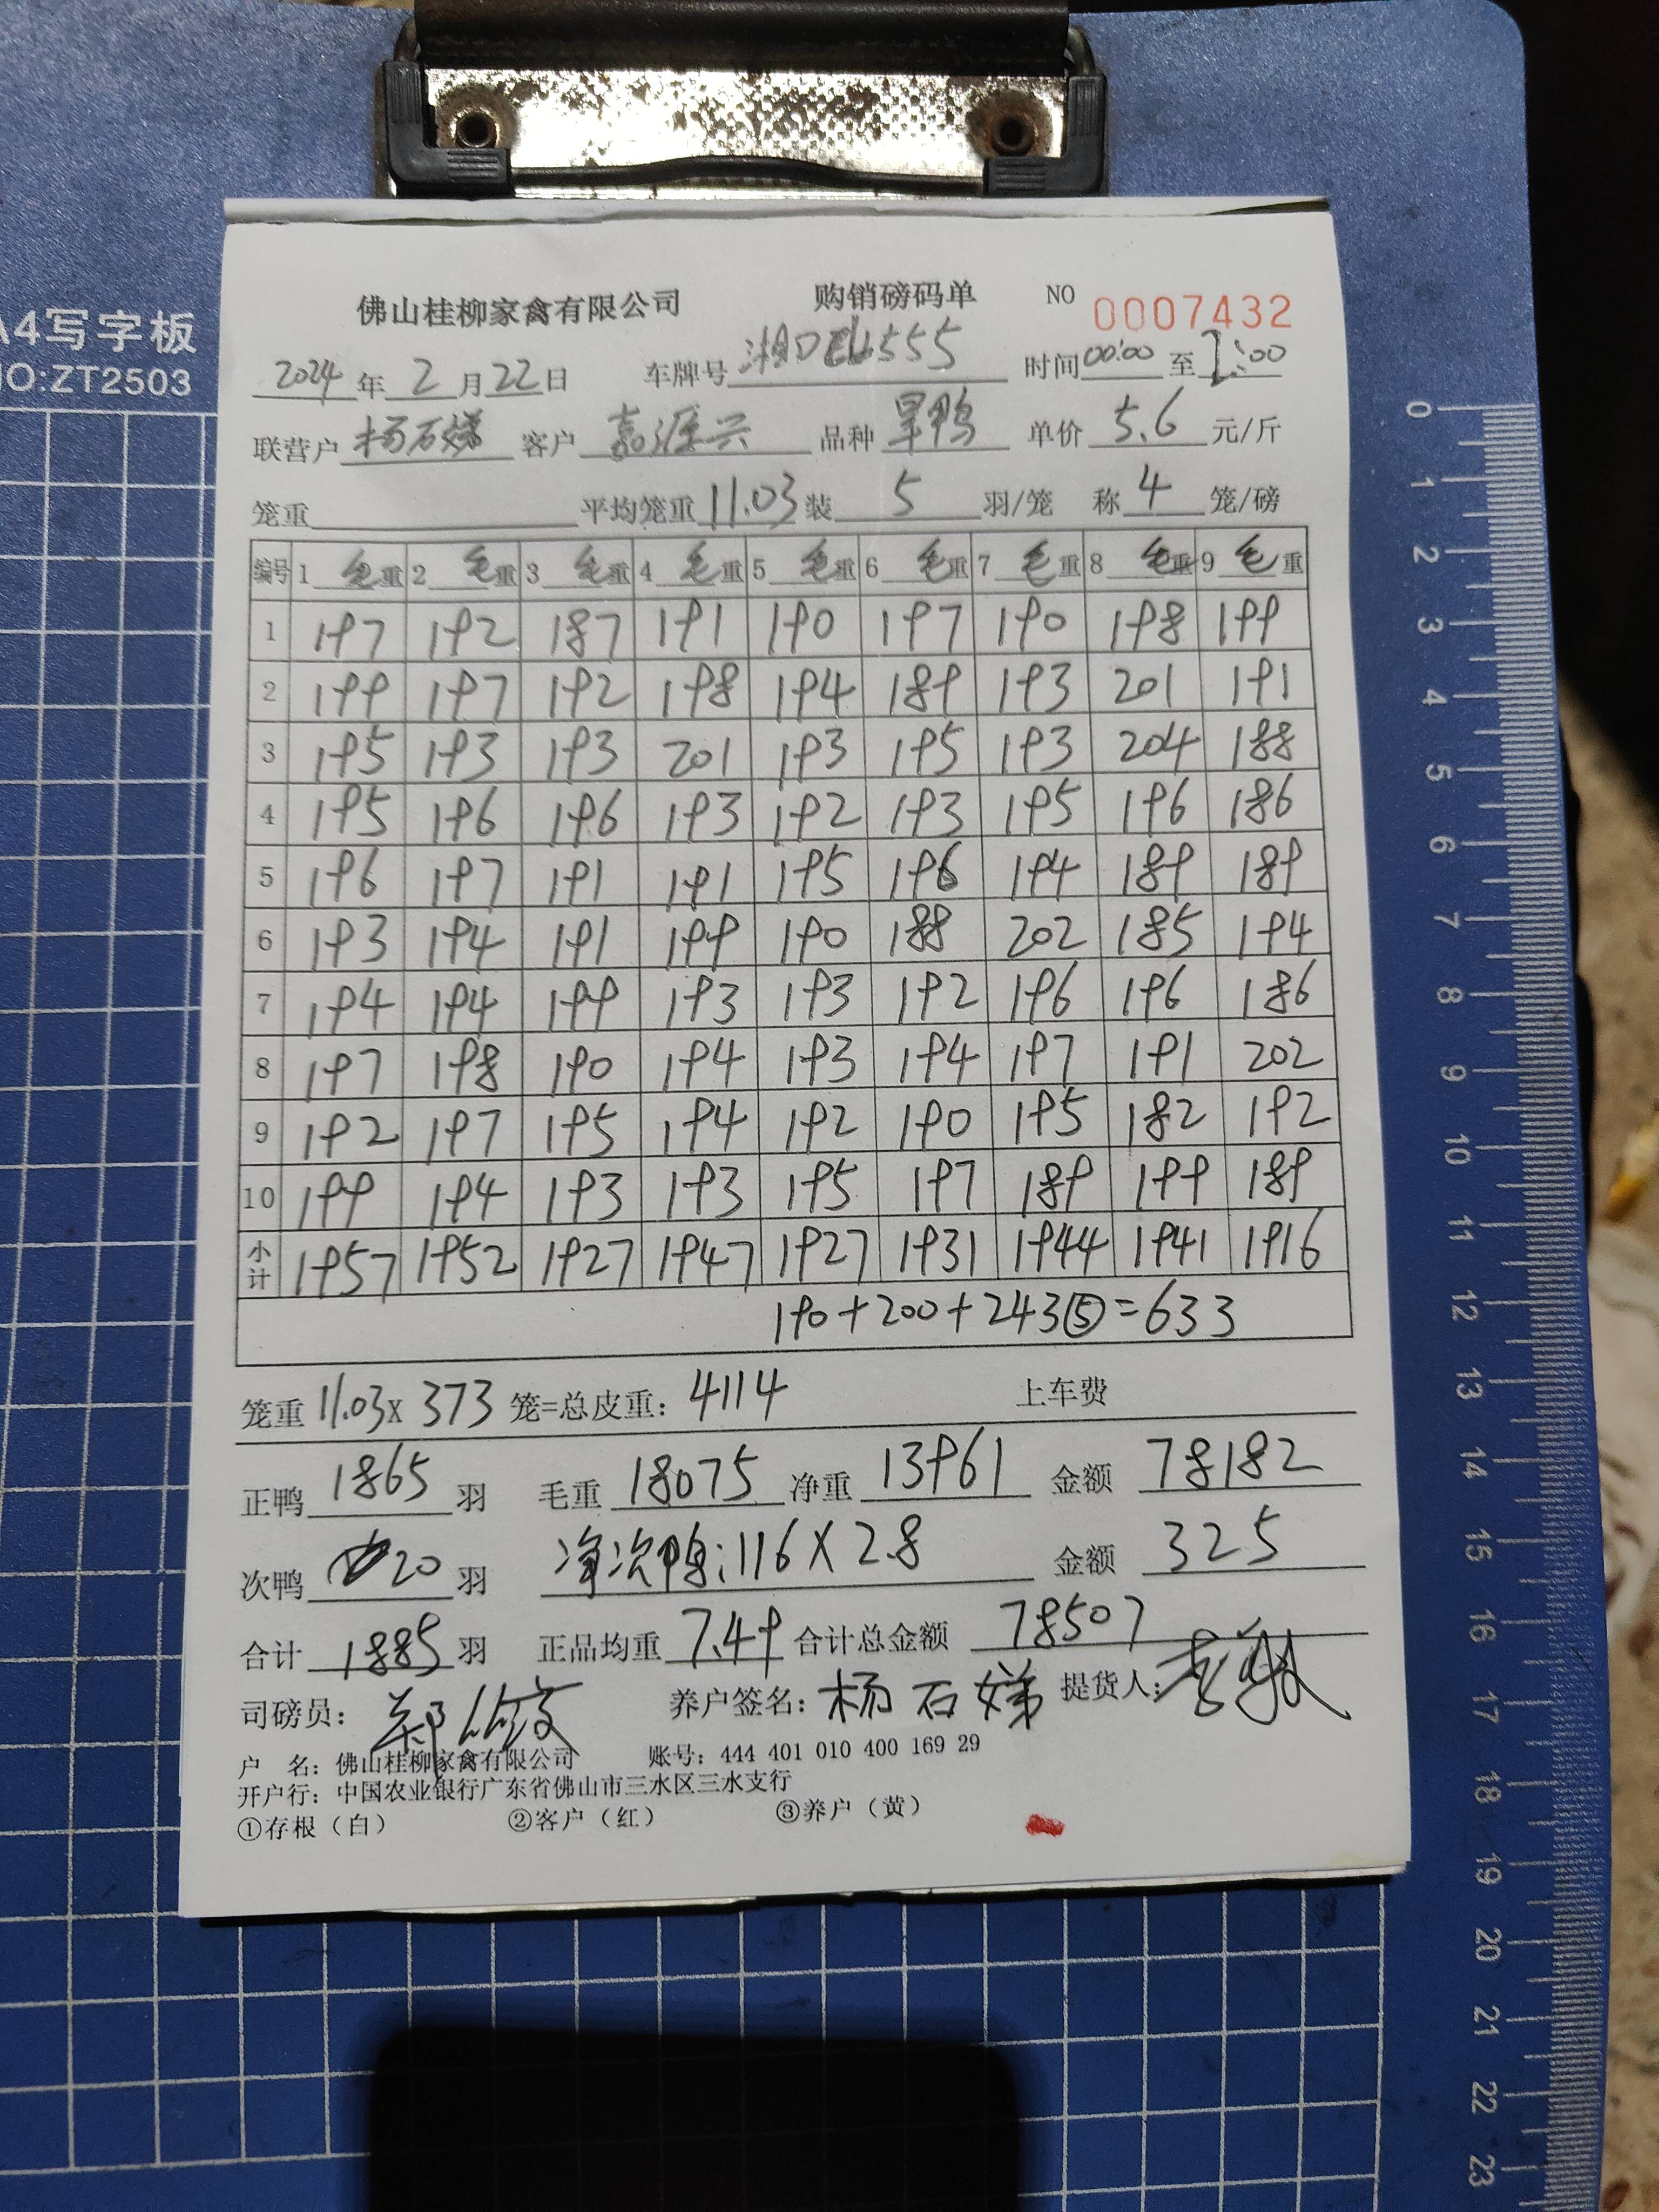 A4写字板
NO:ZT2503
佛山桂柳家禽有限公司 购销磅码单 NO 0007432
2024年2月22日 车牌号 555 时间00:00至2:00
联营户 杨石娣 客户 嘉源兴 品种 旱鸭 单价 5.6 元/斤
笼重 平均笼重 11.03 装 5 羽/笼 称 4 笼/磅
编号 1 毛重 2 毛重 3 毛重 4 毛重 5 毛重 6 毛重 7 毛重 8 毛重 9 毛重
1 197 192 187 191 190 197 190 198 199
2 199 197 192 198 194 189 193 201 191
3 195 193 193 201 193 195 193 204 188
4 195 196 196 193 192 193 195 196 186
5 196 197 191 191 195 196 194 189 189
6 193 194 191 199 190 188 202 185 194
7 194 194 199 193 193 192 196 196 186
8 197 198 190 194 193 194 197 191 202
9 192 197 195 194 192 190 195 182 192
10 199 194 193 193 195 197 189 199 189
小计 1957 1952 1927 1947 1927 1931 1944 1941 1916
190+200+243⑤=633
笼重 11.03 X 373 笼=总皮重: 4114 上车费
正鸭 1865 羽 毛重 18075 净重 13961 金额 78182
次鸭 20 羽 净次鸭:116X2.8 金额 325
合计 1885 羽 正品均重 7.49 合计总金额 78507
司磅员: 养户签名: 杨石娣 提货人:
户 名: 佛山桂柳家禽有限公司 账号: 444 401 010 400 169 29
开户行: 中国农业银行广东省佛山市三水区三水支行
①存根（白） ②客户（红） ③养户（黄）
0
1
2
3
4
5
6
7
8
9
10
11
12
13
14
15
16
17
18
19
20
21
22
23